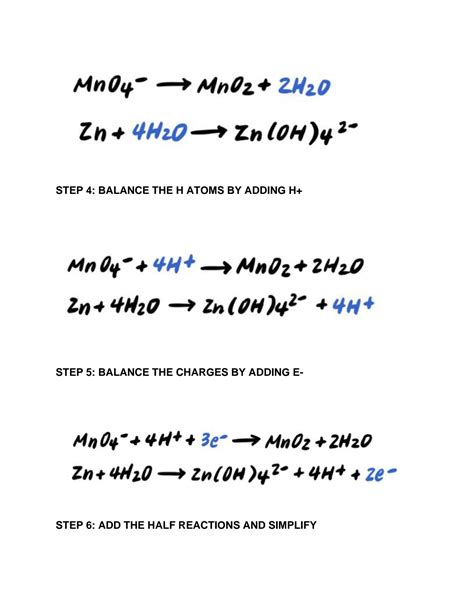 MnO4⁻ → MnO2 + 2H2O
Zn + 4H2O → Zn(OH)4²⁻
STEP 4: BALANCE THE H ATOMS BY ADDING H+
MnO4⁻ + 4H⁺ → MnO2 + 2H2O
Zn + 4H2O → Zn(OH)4²⁻ + 4H⁺
STEP 5: BALANCE THE CHARGES BY ADDING E-
MnO4⁻ + 4H⁺ + 3e⁻ → MnO2 + 2H2O
Zn + 4H2O → Zn(OH)4²⁻ + 4H⁺ + 2e⁻
STEP 6: ADD THE HALF REACTIONS AND SIMPLIFY